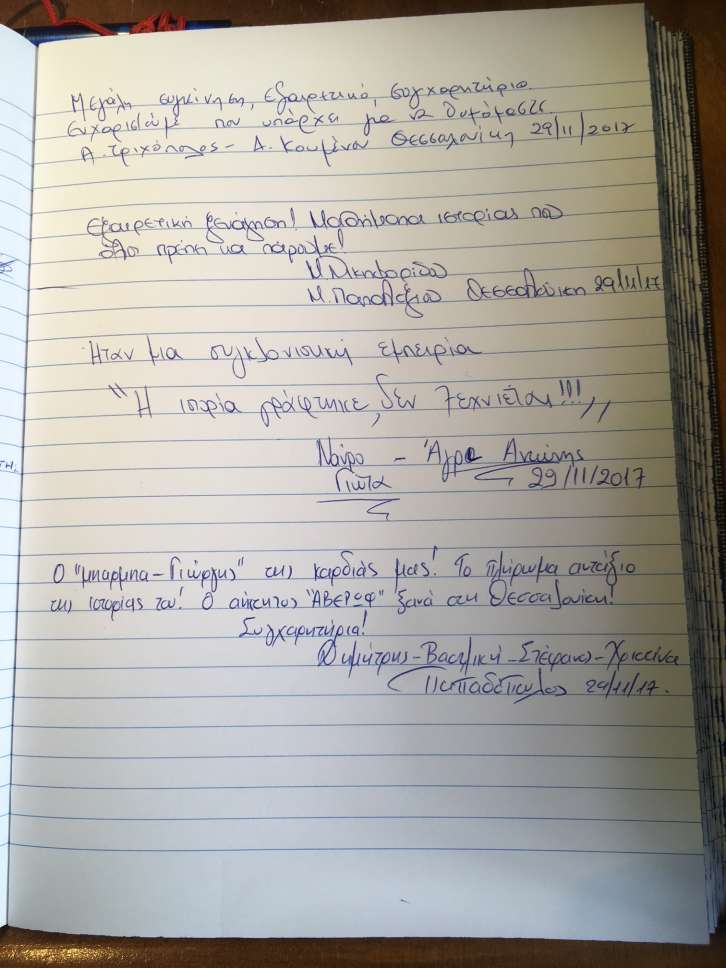 Μεγάλη συγκίνηση, εξαιρετικό, συγχαρητήρια.
Ευχαριστούμε που υπάρχει για να θυμόμαστε
Α. Τριχόπουλος - Δ. Κουμένου Θεσσαλονίκη 29/11/2017
Εξαιρετική ξενάγηση! Μαθήματα ιστορίας που
όλοι πρέπει να πάρουμε!
Μ. Παπαλεξίου Θεσσαλονίκη 29/11/17
Ήταν μια συγκλονιστική εμπειρία
"Η ιστορία γράφτηκε, δεν ξεχνιέται!!!,,
29/11/2017
Γιώτα
Ο "μπαρμπα-Γιώργης" της καρδιάς μας! Το πλήρωμα αντάξιο
της ιστορίας του! Ο αήττητος "ΑΒΕΡΩΦ" ξανά στη Θεσσαλονίκη!
Συγχαρητήρια!
Δημήτρης-Βασιλική-Στέφανος-Χριστίνα
Παπαδόπουλος 29/11/17.